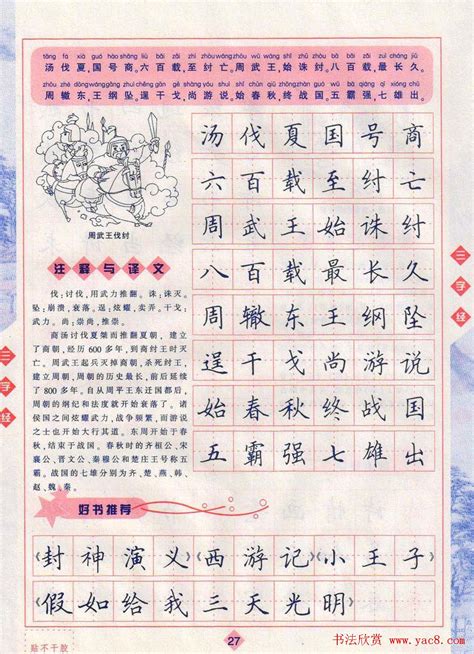 tāng fá xià guó hào shāng liù bǎi zǎi zhì zhòu wáng zhōu wǔ wáng shǐ zhū zhòu bā bǎi zǎi zuì cháng jiǔ
汤伐夏,国号商。六百载,至纣亡。周武王,始诛纣。八百载,最长久。
zhōu zhé dōng wáng gāng zhuì chěng gān gē shàng yóu shuì shǐ chūn qiū zhōng zhàn guó wǔ bà qiáng qī xióng chū
周辙东,王纲坠。逞干戈,尚游说。始春秋,终战国。五霸强,七雄出。
周武王伐纣
注释与译文
伐:讨伐,用武力推翻。诛:诛灭。
坠:崩溃,衰落。逞:炫耀,卖弄。干戈:
武力。尚:崇尚,推崇。
商汤讨伐夏桀而推翻夏朝,建立
了商朝,经历 600 多年,到商纣王时灭
亡。周武王起兵灭掉商朝,杀死纣王,
建立周朝,周朝的历史最长,前后延续
了 800 多年。自从周平王东迁国都后,
周朝的纲纪和法度就开始衰落了。诸
侯国之间炫耀武力,战争频繁,而游说
之士也开始大行其道。东周开始于春
秋,结束于战国。春秋时的齐桓公、宋
襄公、晋文公、秦穆公和楚庄王号称五
霸。战国的七雄分别为齐、楚、燕、韩、
赵、魏、秦。
汤伐夏国号商
六百载至纣亡
周武王始诛纣
八百载最长久
周辙东王纲坠
逞干戈尚游说
始春秋终战国
五霸强七雄出
三字经
三字经
好书推荐
《封神演义》《西游记》《小王子》
《假如给我三天光明》
27
贴不干胶
书法欣赏 www.yac8.com